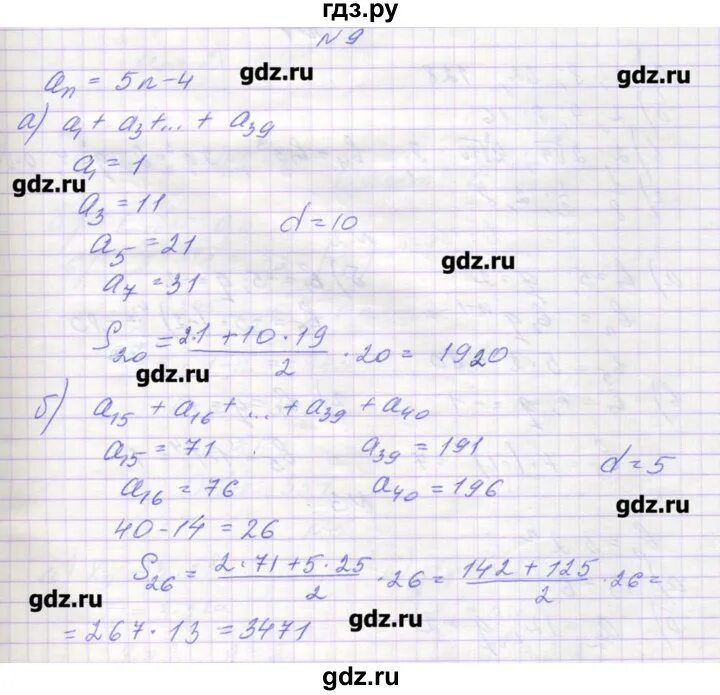 гдз.ру
№9
gdz.ru
gdz.ru
aₙ = 5n-4
а) a₁ + a₃ +...+ a₃₉
a₁ = 1
gdz.ru
a₃ = 11
d = 10
a₅ = 21
gdz.ru
a₇ = 31
S₂₀ = (2·1 + 10·19)/2 · 20 = 1920
gdz.ru
б) a₁₅ + a₁₆ + ... + a₃₉ + a₄₀
a₁₅ = 71 a₃₉ = 191
d = 5
a₁₆ = 76 a₄₀ = 196
gdz.ru
40-14 = 26
S₂₆ = (2·71+5·25)/2 · 26 = (142 + 125)/2 · 26 =
gdz.ru
= 267·13 = 3471
gdz.ru
gdz.ru